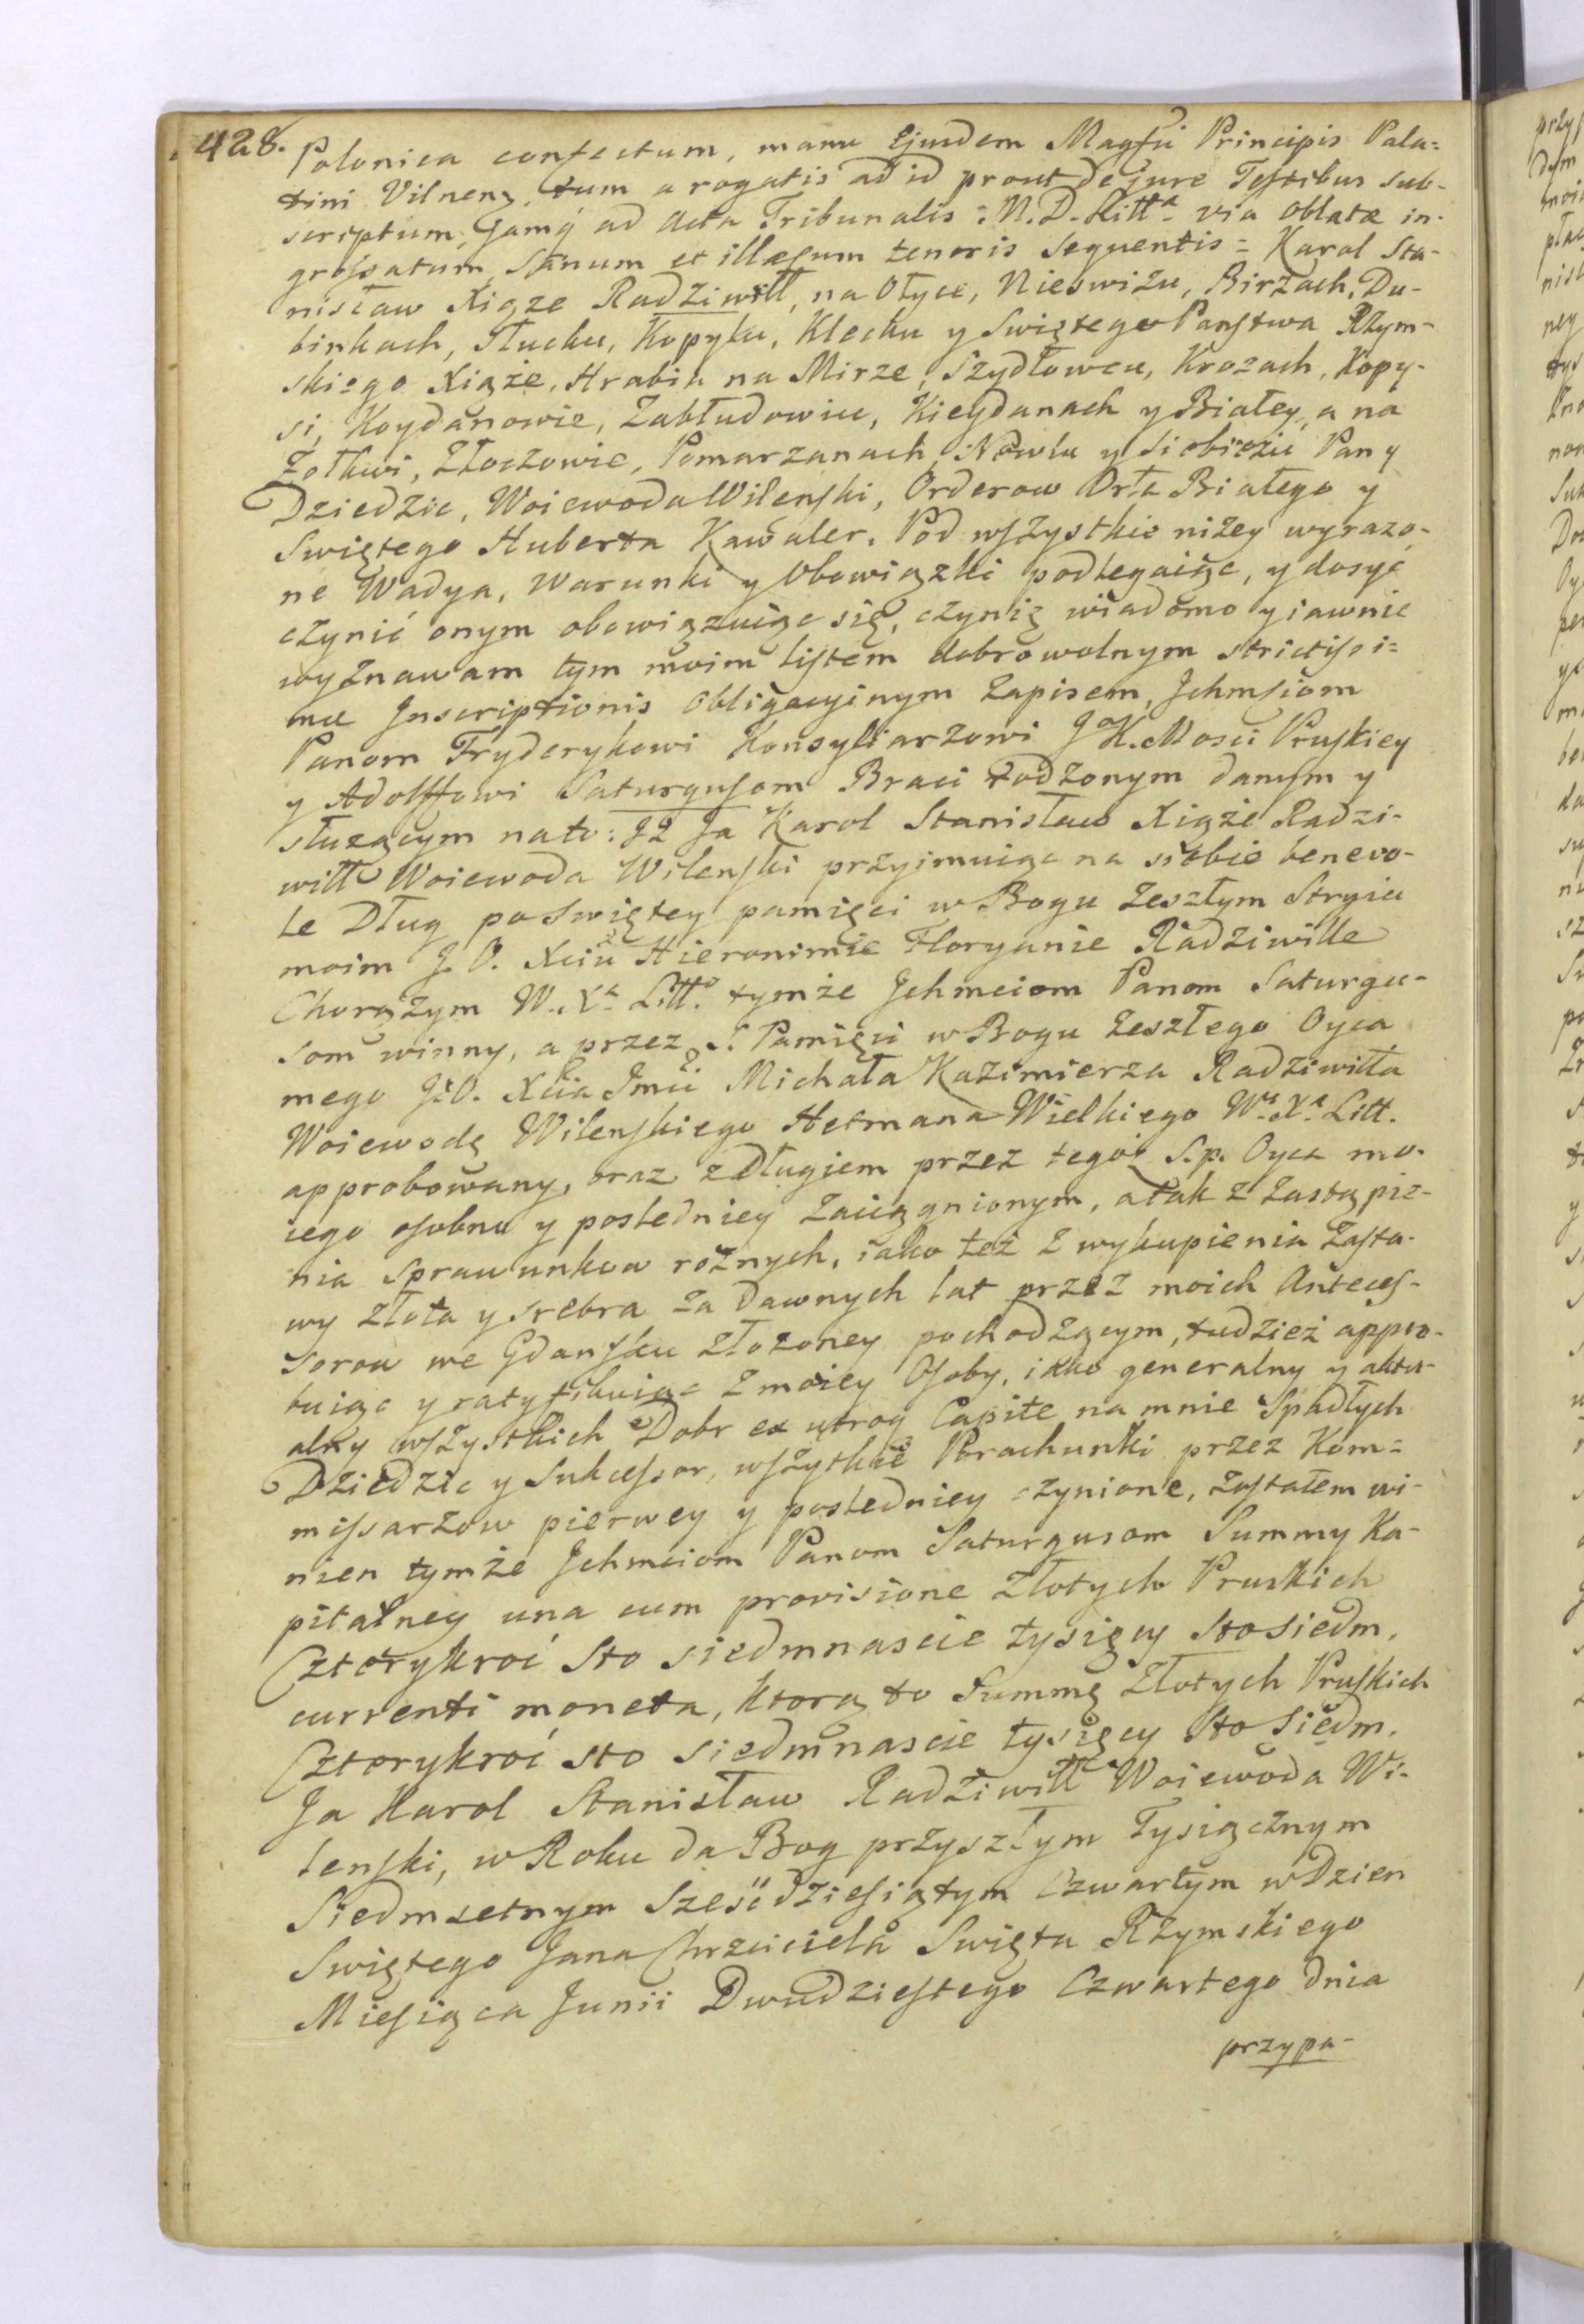 428.
Polonica confectum, manu Ejusdem Magfci Principis Pala=
tini Vilnens, tum a rogatis ad id prout de jure Testibus sub-
scriptum, Jamq ad Acta Tribunalis M. D. Litta via Oblatæ in-
grossatum, sanum et illæsum tenoris sequentis = Karol Sta-
nisław Xiąze Radziwiłł, na Ołyce, Nieswizu, Birżach, Du-
binkach, Słucku, Kopylu, Klecku y Swiętego Panstwa Rzym-
skiego Xiąże, Hrabia na Mirze, Szydłowcu, Krozach, Kopy-
si, Koydanowie, Zabłudowiu, Kieydanach y Białey, a na
Żołkwi, Złoczowie, Pomarzanach, Newlu y Siebieżu Pan y
Dziedzic, Woiewoda Wilenski, Orderow Orła Białego y
Swiętego Huberta Kawaler. Pod wszystkie niżey wyrazo-
ne Wadya, warunki y Obowiązki podlegaiąc, y dosyć
czynić onym obowiązuiąc się, czynię wiadomo y iawnie
wyznawam tym moim listem dobrowolnym strictissi=
mæ Inscriptionis obligacyinym Zapisem, Jchmsciom
Panom Fryderykowi Konsyliarzowi J. K. Mosci Pruskiey
y Adolffowi Saturgusom Braci rodzonym danym y
służącym na to: Iż Ja Karol Stanisław Xiąże Radzi-
wiłł Woiewoda Wilenski przyimuiąc na siebie benevo-
le Dług po swiętey pamięci w Bogu Zeszłym Stryiu
moim J. O. Xciu Hieronimie Floryanie Radziwille
Chorążym W. Xa Litto tymże Jchmciom Panom Saturgu-
som winny, a przez S. Pamięci w Bogu Zeszłego Oyca
mego J: O. Xcia Jmci Michała Kazimierza Radziwiłła
Woiewodę Wilenskiego Hetmana Wielkiego Wo Xa Litt.
approbowany, oraz z długiem przez tegoż S. p. Oyca mo-
iego osobno y posledniey Zaciągnionym, a tak z Zastąpie-
nia sprawunkow rożnych, iako też z wykupienia Zasta-
wy złota y srebra za dawnych lat przez moich Anteces-
sorow we Gdansku złożoney pochodzącym, tudzież appro-
buiąc y ratyfikuiąc z moiey Osoby, iako generalny y aktu-
alny wszystkich Dobr ex utroq Capite na mnie Spadłych
Dziedzic y Sukcessor, wszytkie Porachunki przez Kom=
missarzow pierwey y posledniey czynione, Zostałem wi-
nien tymże Jchmciom Panom Saturgusom Summy Ka-
pitalney una cum provisione Złotych Pruskich
Czterykroć sto siedmnascie tysięcy sto siedm,
currenti moneta, ktorą to Summę Złotych Pruskich
Czterykroć sto siedmnascie tysięcy sto siedm.
Ja Karol Stanisław Radziwiłł Woiewoda Wi-
lenski, w Roku da Bog przyszłym Tysiącznym
Siedmsetnym Szesćdziesiątym Czwartym w Dzien
Swiętego Jana Chrzciciela Swięta Rzymskiego
Miesiąca Junii Dwudziestego Czwartego dnia
przypa-